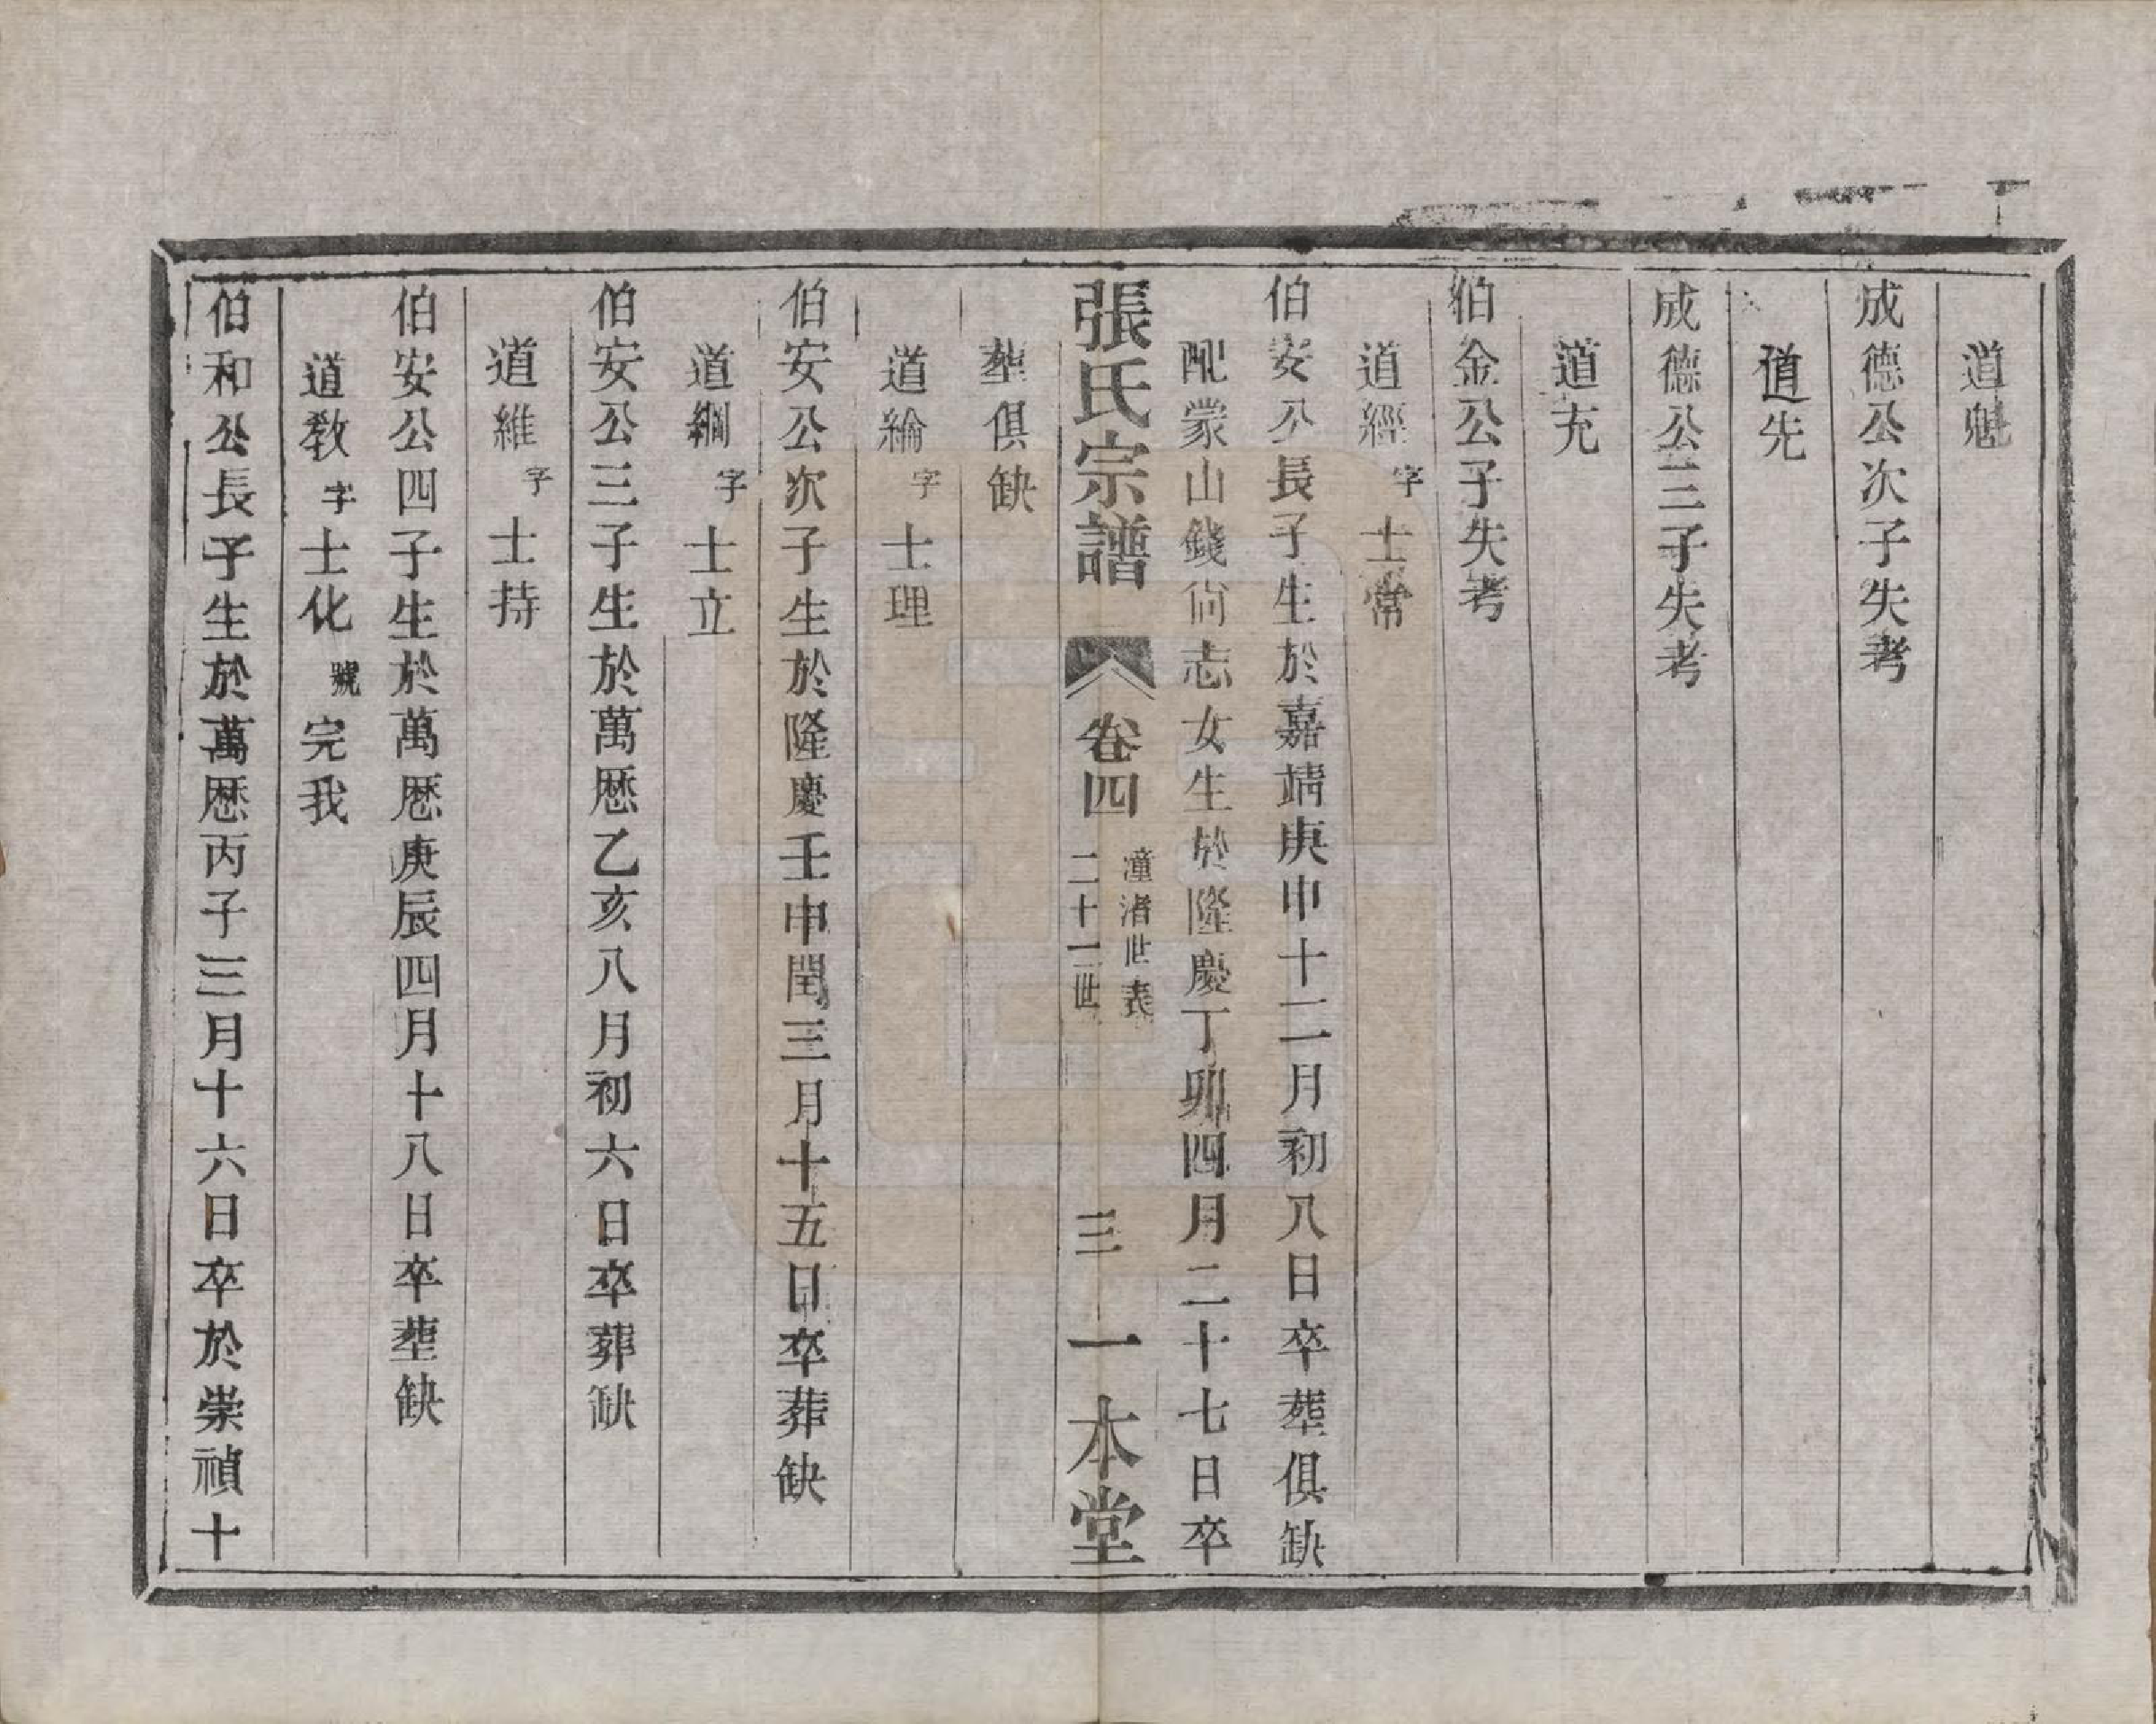 道魁
成德公次子失考
道先
成德公三子失考
道充
伯金公子失考
道經字士常
伯安公長子生於嘉靖庚申十二月初八日卒塟俱缺
配蒙山錢尙志女生於隆慶丁卯四月二十七日卒
張氏宗譜 卷四 潼渚世表 二十一世 三 一本堂
塟俱缺
道綸字士理
伯安公次子生於隆慶壬申閏三月十五日卒葬缺
道綱字士立
伯安公三子生於萬歷乙亥八月初六日卒葬缺
道維字士持
伯安公四子生於萬歷庚辰四月十八日卒塟缺
道教字士化號完我
伯和公長子生於萬歷丙子三月十六日卒於崇禎十